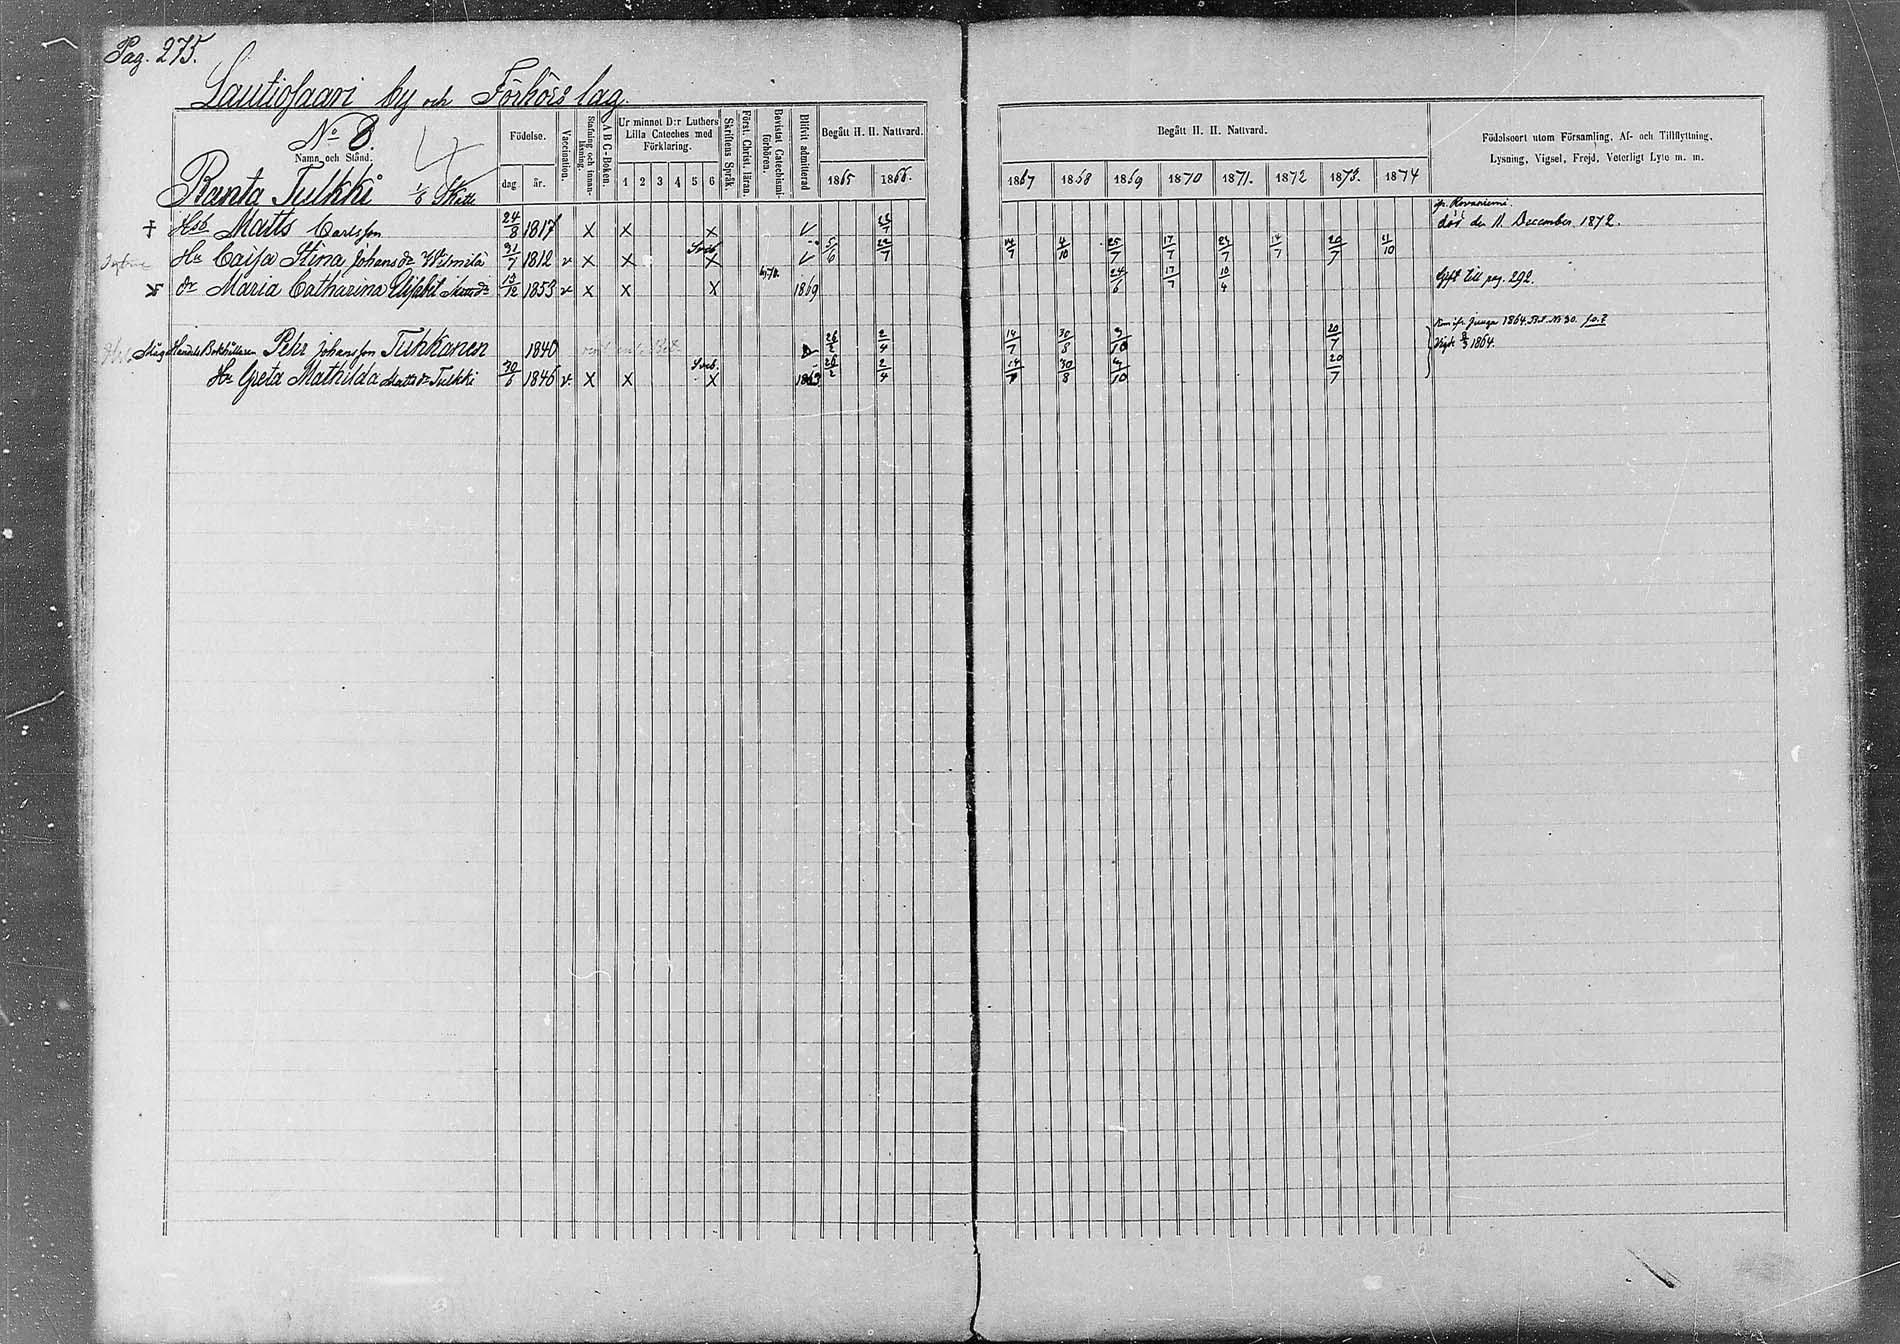 Pag. 275.
Lautiosaari by och Förhörs lag.
No 8.
Namn och Stånd.
Ranta Tulkki 1/8 Skatt
Födelse.
dag år.
Vaccination.
Stafning och innanläsning.
ABC-Boken.
Ur minnet D:r Luthers Lilla Cateches med Förklaring.
1 2 3 4 5 6
Skriftens Språk.
Först. Christ. läran.
Bevistat Catechismiförhören.
Blifvit admitterad
Begått H. H. Nattvard.
1865 1866.
Begått H. H. Nattvard.
1867 1868 1869 1870 1871. 1872 1873. 1874
Födelseort utom Församling, Af- och Tillflyttning,
Lysning, Vigsel, Frejd, Veterligt Lyte m. m.
Rovaniemi.
† Hsb Matts Carlsson 24/8 1817 x x x v 22/7 död den 11 December 1872.
Hu Caisa Stina Johansdr Wilmilä 31/7 1812 v x x Sveb. x v 5/6 22/7 14/7 4/10 25/7 17/7 24/7 14/7 20/7 11/10
dr Maria Catharina Elisabet Mattsdr 13/12 1853 v x x x 1869 24/6 17/7 10/4 Gift till pag. 292.
1864
Handels Bokhållaren Pehr Johansson Tuhkanen 1840 26/2 2/4 14/7 30/8 3/10 20/7 Vigde 1864.
Hu Greta Mathilda Mattsdr Tulkki 30/6 1846 v x x Sveb. x 1863 26/2 2/4 14/7 30/8 3/10 20/7